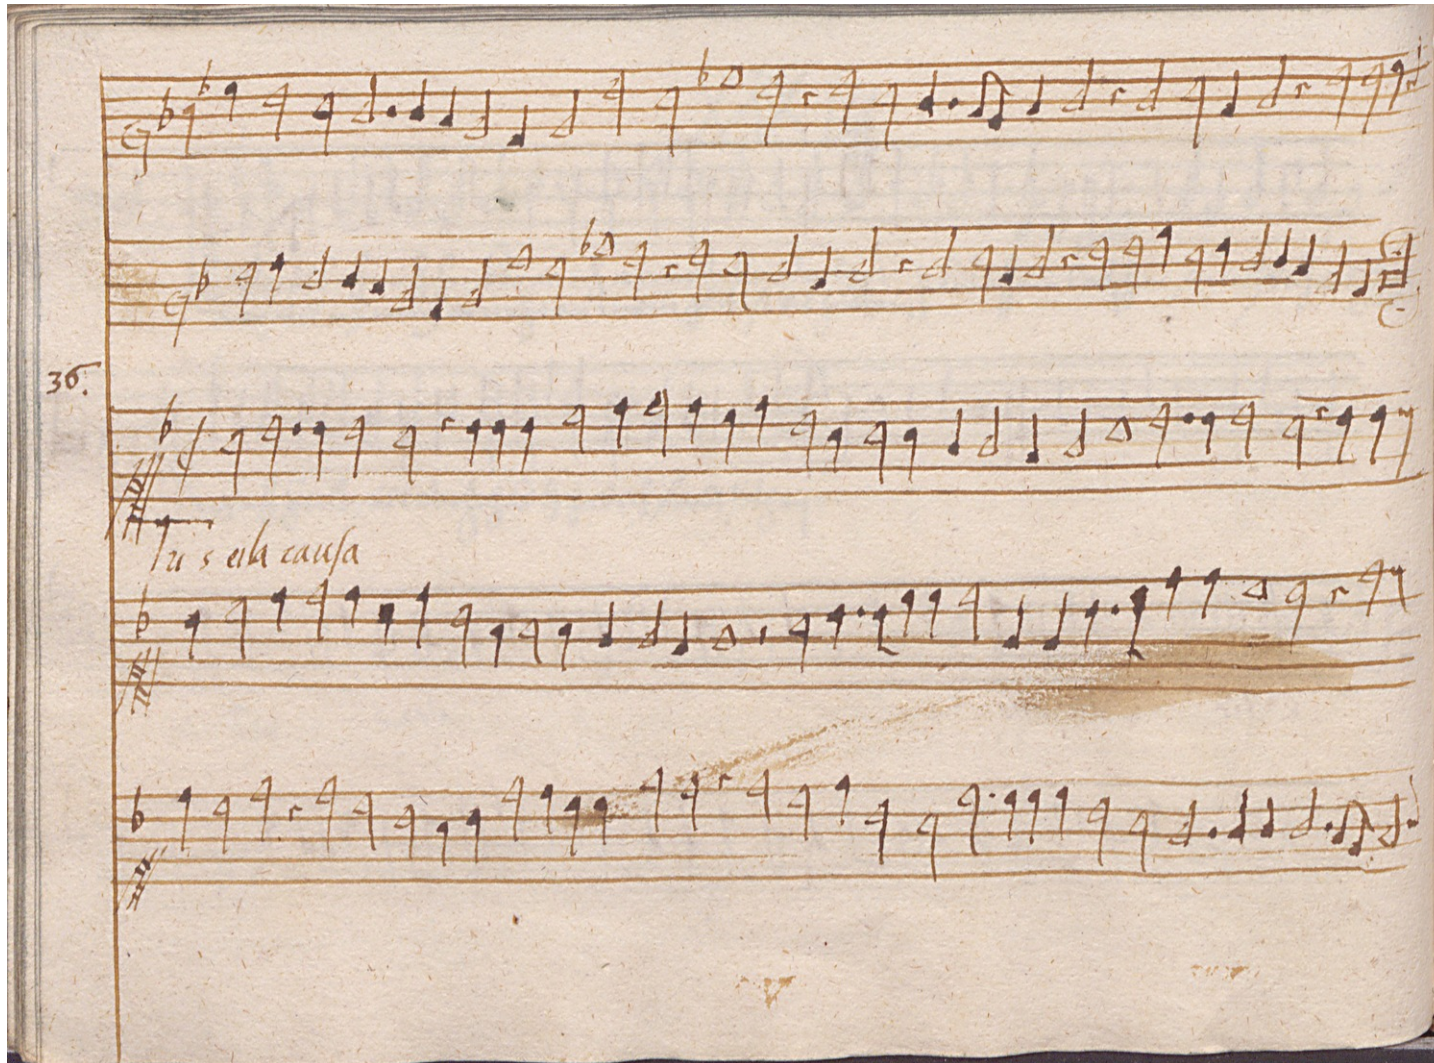 36.
Tu s ei la causa